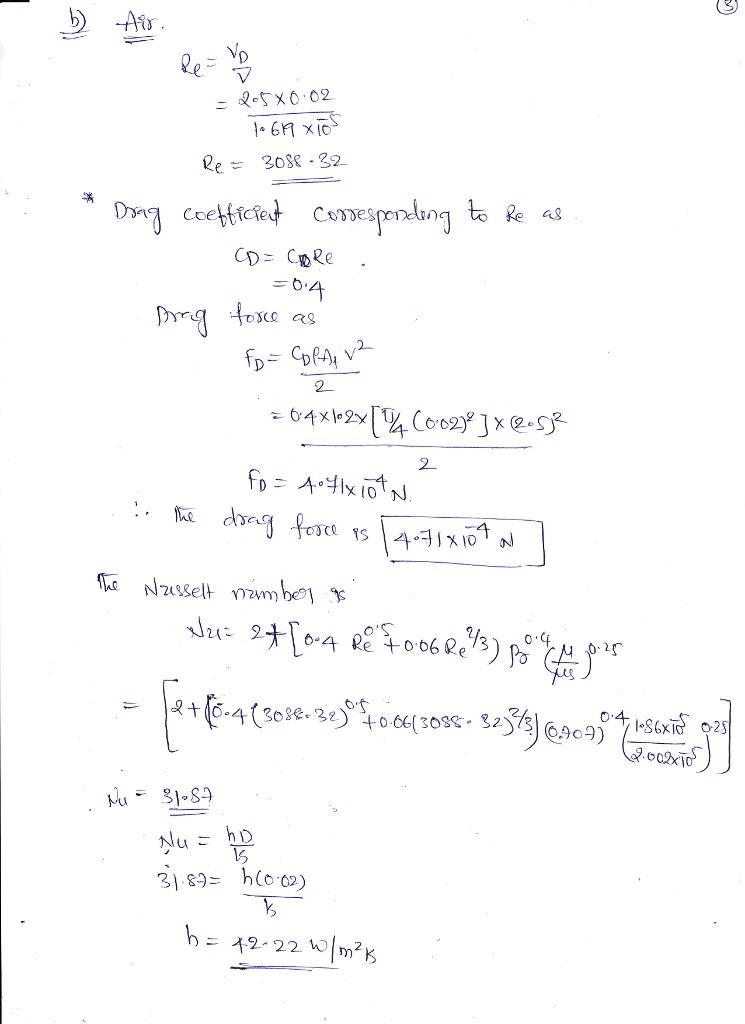 ③
b) Air.
Re = VD/ν
= 2.5×0.02 / 1.619 ×10⁻⁵
Re = 3088.32
* Drag coefficient corresponding to Re as.
CD = CDRe.
= 0.4
Drag force as
FD = CDρA₁V² / 2
= 0.4×1.2×[π/4 (0.02)²]×(2.5)² / 2
FD = 4.71×10⁻⁴ N.
∴ The drag force is 4.71×10⁻⁴ N
The Nusselt number is
Nu = 2+[0.4 Re^0.5 + 0.06 Re^2/3) Pr^0.4 (μ/μs)^0.25
= [2+[0.4(3088.32)^0.5 + 0.06(3088.32)^2/3] (0.707)^0.4 (1.86×10⁻⁵ / 2.002×10⁻⁵)^0.25]
Nu = 31.87
Nu = hD/k
31.87 = h(0.02)/k
h = 42.22 W/m²K